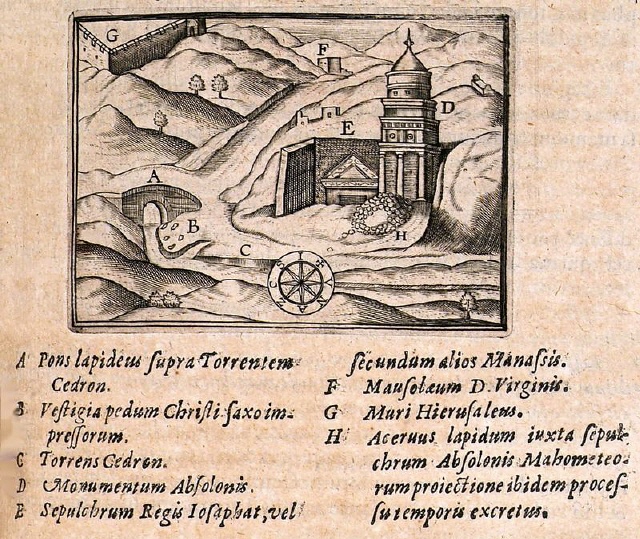 G
F
D
E
A
B
C
H
A Pons lapideus ſupra Torrentem
Cedron.
B Veſtigia pedum Chriſti ſaxo im-
preſſorum.
C Torrens Cedron.
D Monumentum Abſolonis.
E Sepulchrum Regis Ioſaphat, vel
ſecundum alios Manaſſis.
F Mauſolæum D. Virginis.
G Muri Hieruſaleus.
H Aceruus lapidum iuxta ſepul-
chrum Abſolonis Mahometeo-
rum proiectione ibidem proceſ-
ſu temporis excretus.